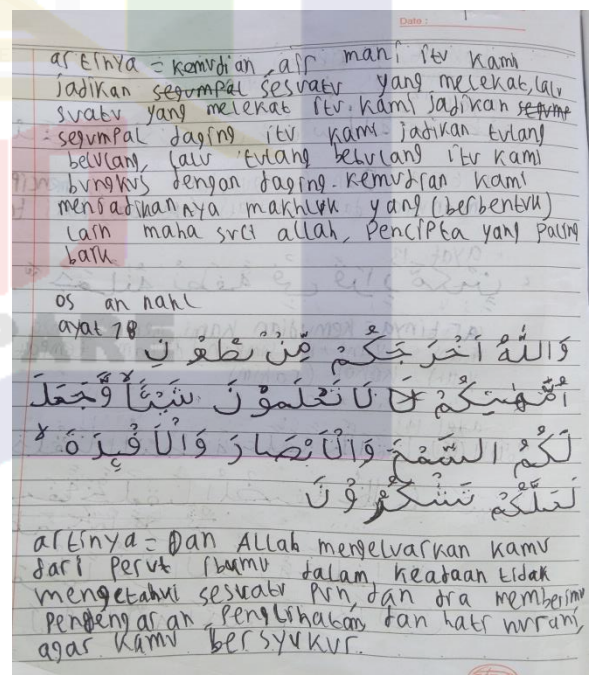 Date :
artinya = kemudian, air mani itu kami
jadikan segumpal sesuatu yang melekat, lalu
suatu yang melekat itu. kami jadikan segume
segumpal daging itu kami jadikan tulang
belulang, lalu tulang belulang itu kami
bungkus dengan daging. kemudian kami
menjadikannya makhluk yang (berbentuk)
lain maha suci allah, Pencipta yang paling
baik
os an nahl
ayat 78
وَاللّٰهُ اَخْرَجَكُمْ مِّنْ بُطُوْنِ
اُمَّهٰتِكُمْ لَا لَا تَعْلَمُوْنَ شَيْئًا وَّجَعَلَ
لَكُمُ السَّمْعَ وَالْاَبْصَارَ وَالْاَفْـِٕدَةَ ۙ
لَعَلَّكُمْ تَشْكُرُوْنَ
artinya = Dan Allah mengeluarkan kamu
dari Perut ibumu dalam keadaan tidak
mengetahui sesuatu pun, dan dia memberimu
Pendengaran, Penglihatan dan hati nurani,
agar kamu bersyukur.